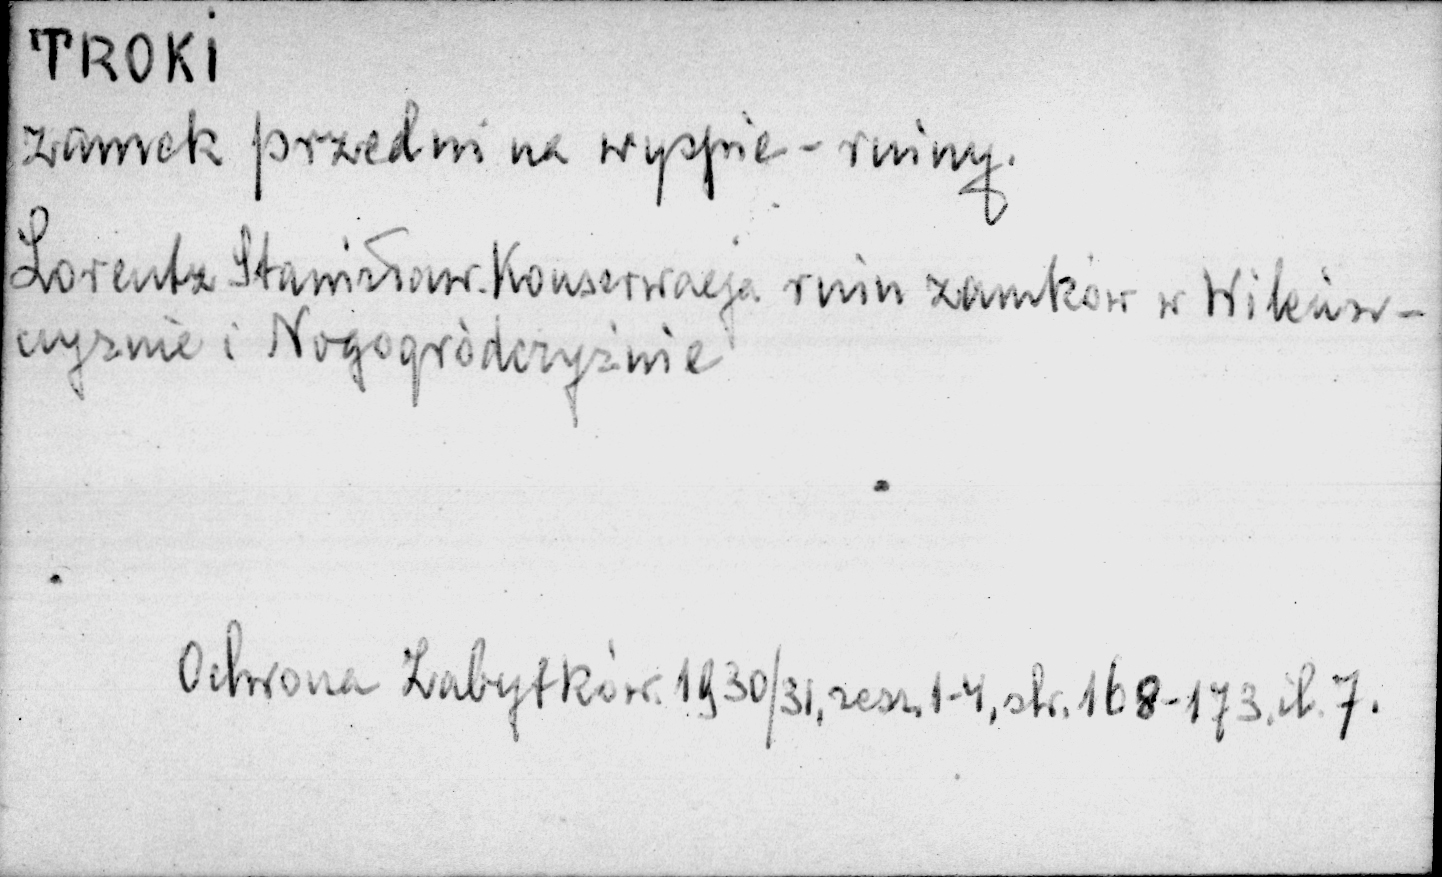 TROKI
zamek przedni na wyspie - ruiny.
Lorentz Stanisław. Konserwacja ruin zamków w Wileńsz-
czyźnie i Nogogródczyźnie
Ochrona Zabytków. 1930/31, zesz. 1-4, str. 168-173, il. 7.